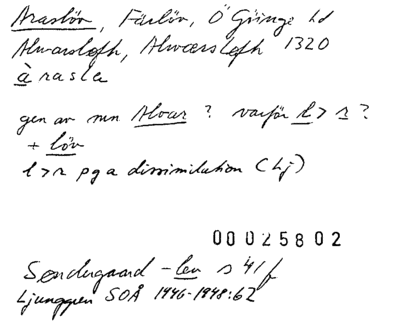 Araslöv, Färlöv, Ö Göinge hd
Alwarsleff, Alwærsleff 1320
àrasla
gen av mn Alvar ? varför l > r ?
+ löv
l > r pga dissimilation (Lj)
00025802
Søndergaard -lev s 41 f
Ljunggren SOÅ 1946-1948:62